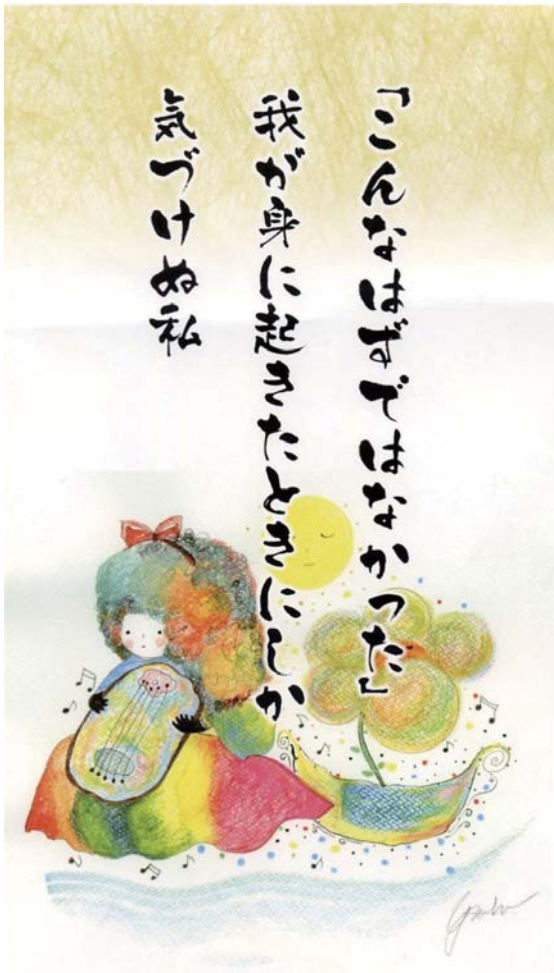 「こんなはずではなかった」
我が身に起きたときにしか
気づけぬ私